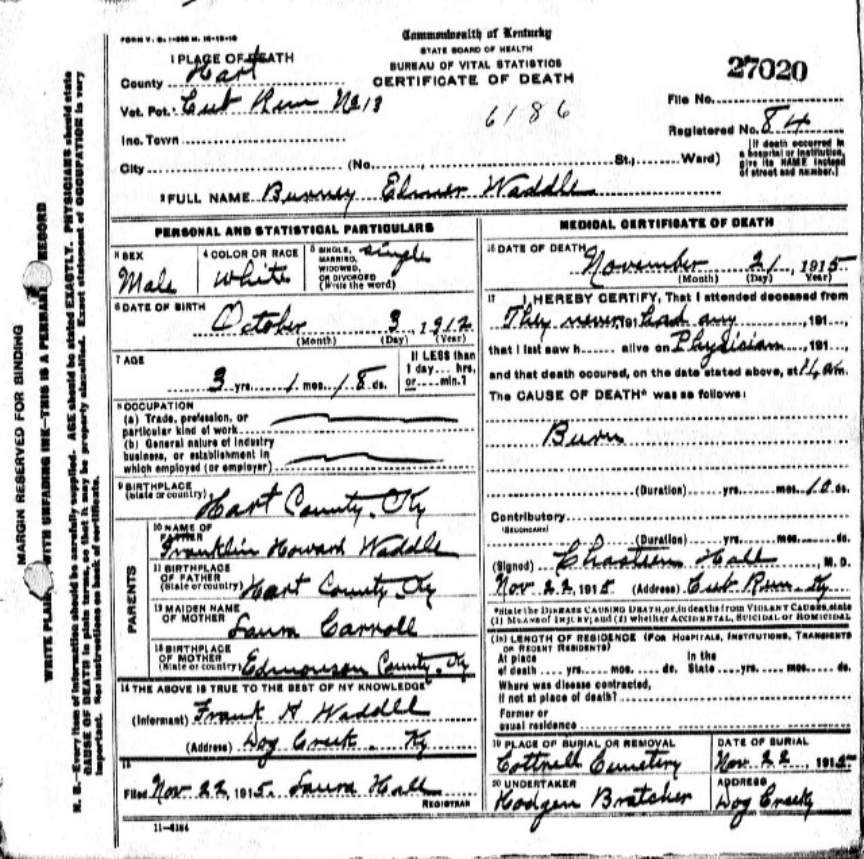 FORM V. S. 1-
Commonwealth of Kentucky
STATE BOARD OF HEALTH
BUREAU OF VITAL STATISTICS
CERTIFICATE OF DEATH
27020
6186
1 PLACE OF DEATH
County Hart
Vot. Pct. Cut Run No 13
Inc. Town
City (No. St.; Ward)
File No.
Registered No. 84
[If death occurred in a hospital or institution, give its NAME instead of street and number.]
2 FULL NAME Burney Elmer Waddle
PERSONAL AND STATISTICAL PARTICULARS
3 SEX Male
4 COLOR OR RACE White
5 SINGLE, MARRIED, WIDOWED, OR DIVORCED (Write the word) single
6 DATE OF BIRTH October 3, 1912
(Month) (Day) (Year)
7 AGE 3 yrs. 1 mos. 18 ds.
If LESS than 1 day... hrs. or... min.?
8 OCCUPATION
(a) Trade, profession, or particular kind of work
(b) General nature of industry business, or establishment in which employed (or employer)
9 BIRTHPLACE (State or country) Hart County, Ky
PARENTS
10 NAME OF FATHER Franklin Howard Waddle
11 BIRTHPLACE OF FATHER (State or country) Hart County Ky
12 MAIDEN NAME OF MOTHER Laura Carroll
13 BIRTHPLACE OF MOTHER (State or country) Edmonson County, Ky
14 THE ABOVE IS TRUE TO THE BEST OF MY KNOWLEDGE
(Informant) Frank H Waddle
(Address) Dog Creek Ky
15
Filed Nov 22, 1915. Laura Hall
REGISTRAR
11-6184
MEDICAL CERTIFICATE OF DEATH
16 DATE OF DEATH November 21, 1915
(Month) (Day) (Year)
17 I HEREBY CERTIFY, That I attended deceased from
They never 191 had any, 191
that I last saw h alive on Physician, 191
and that death occured, on the date stated above, at m.
The CAUSE OF DEATH* was as follows:
Burn
(Duration) yrs. mos. 10 ds.
Contributory
(SECONDARY)
(Duration) yrs. mos. ds.
(Signed) Hall, M.D.
Nov 22 1915 (Address) Cub Run, Ky
*State the DISEASE CAUSING DEATH, or, in deaths from VIOLENT CAUSES, state (1) MEANS OF INJURY; and (2) whether ACCIDENTAL, SUICIDAL or HOMICIDAL
18 LENGTH OF RESIDENCE (FOR HOSPITALS, INSTITUTIONS, TRANSIENTS OR RECENT RESIDENTS)
At place of death yrs. mos. ds. In the State yrs. mos. ds.
Where was disease contracted, if not at place of death?
Former or usual residence
19 PLACE OF BURIAL OR REMOVAL Cottrell Cemetery
DATE OF BURIAL Nov. 22, 1915
20 UNDERTAKER Hodgen Bratcher
ADDRESS Dog Creek
MARGIN RESERVED FOR BINDING
WRITE PLAINLY, WITH UNFADING INK—THIS IS A PERMANENT RECORD
N. B.—Every item of information should be carefully supplied. AGE should be stated EXACTLY. PHYSICIANS should state
CAUSE OF DEATH in plain terms, so that it may be properly classified. Exact statement of OCCUPATION is very
important. See instructions on back of certificate.